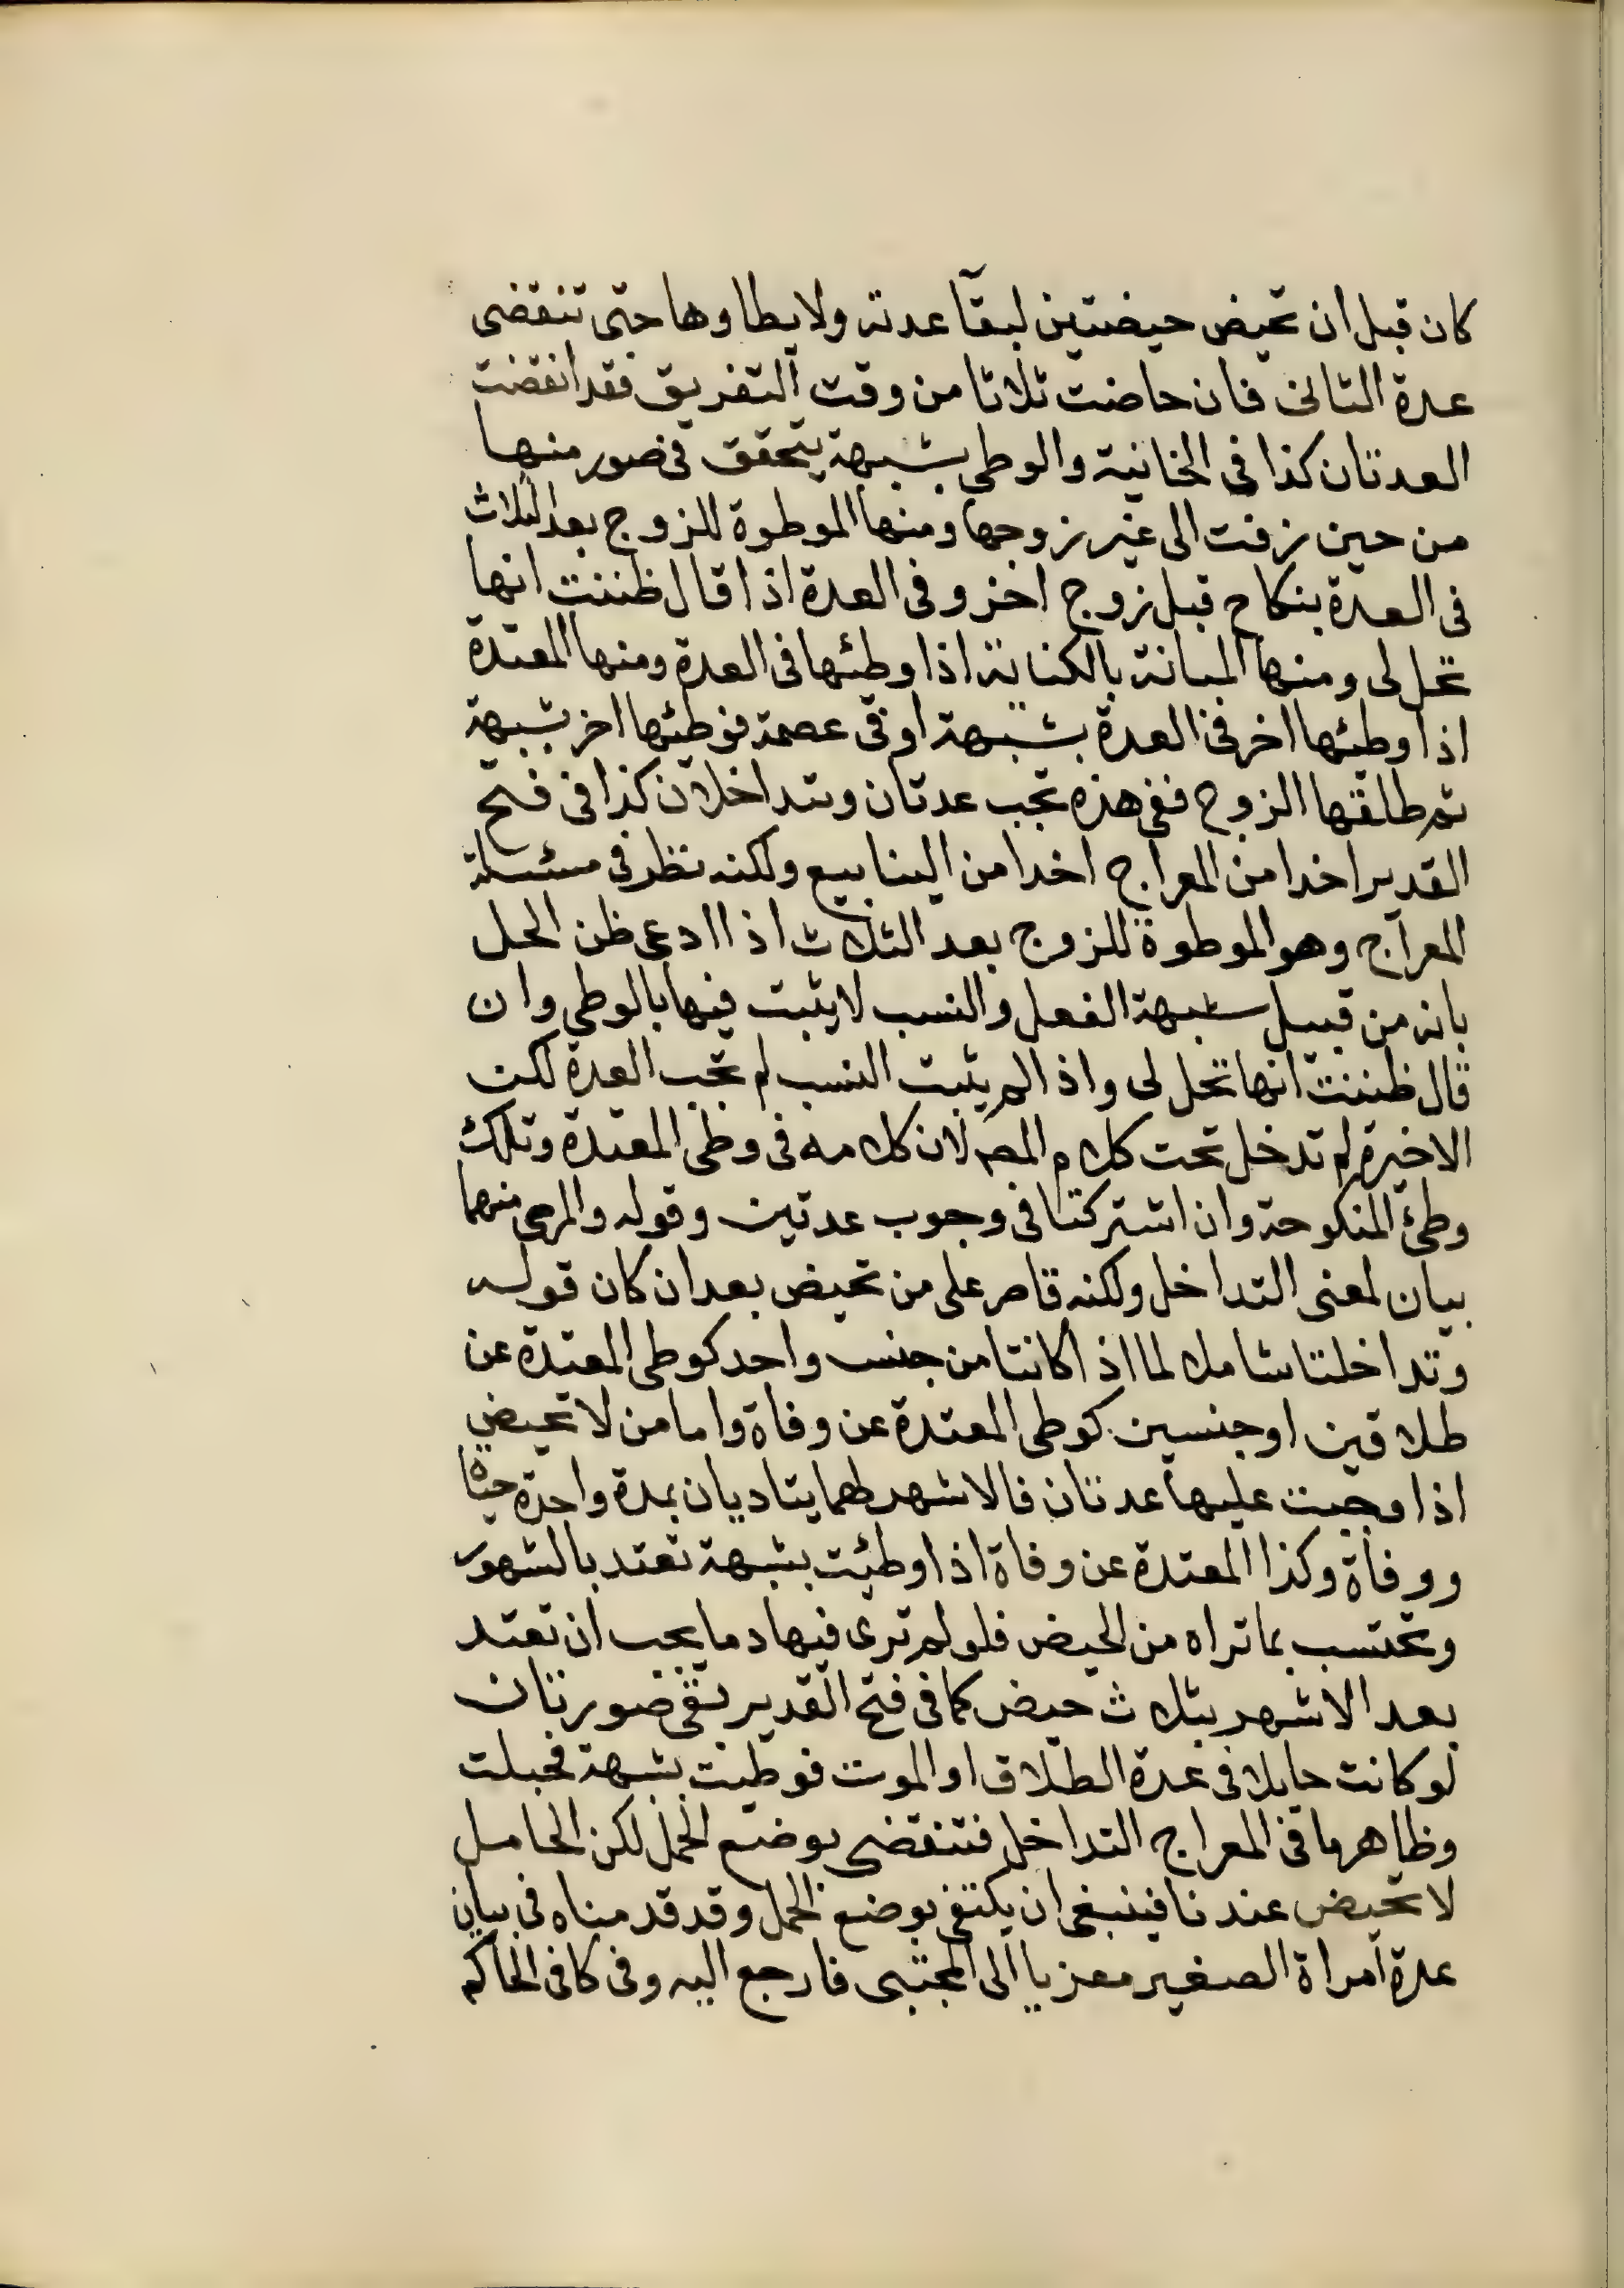 كان قبل ان تحيض حيضتين لبقآ عدته ولا يطاوها حتى تنقضى
عدة الثانى فان حاضت ثلاثا من وقت التفريق فقد انقضت
العدتان كذا فى الخانية والوطى بشبهة يتحقق فى صور منها
من حين زفت الى غير زوجها ومنها الموطوة للزوج بعد الثلاث
فى العدة بنكاح قبل زوج اخر وفى العدة اذا قال ظننت انها
تحل لى ومنها المبانة بالكناية اذا وطئها فى العدة ومنها المعتدة
اذا وطئها اخر فى العدة بشبهة او فى عصمة فوطئها اخر بشبهة
ثم طلقها الزوج ففى هذه تجب عدتان وتتداخلان كذا فى فتح
القدير اخدا من المعراج اخدا من الينابيع ولكنه نظر فى مسئلة
المعراج وهو الموطوة للزوج بعد الثلاث اذا ادعى ظن الحل
بانه من قبيل شبهة الفعل والنسب لا يثبت فيها بالوطى وان
قال ظننت انها تحل لى واذا لم يثبت النسب لم تجب العدة لكن
الاخيرة لم تدخل تحت كلام المصـ لان كلامه فى وطى المعتدة وتلك
وطئ المنكوحة وان اشتركتا فى وجوب عدتين وقوله والمرءى منهما
بيان لمعنى التداخل ولكنه قاصر على من تحيض بعد ان كان قوله
وتداخلتا شاملا لما اذا كانتا من جنس واحد كوطى المعتدة عن
طلاق فين او جنسين كوطى المعتدة عن وفاة واما من لا تحيض
اذا وجبت عليها عدتان فالاشهر لهما يتاديان بمدة واحدة حياة
ووفاة وكذا المعتدة عن وفاة اذا وطئت بشبهة تعتد بالشهور
وتحتسب بما تراه من الحيض فلو لم ترى فيها دما يجب ان تعتد
بعد الاشهر بثلاث حيض كما فى فتح القدير بقى صورتان
لو كانت حايلا فى عدة الطلاق او الموت فوطئت بشبهة فحبلت
وظاهر ما فى المعراج التداخل فتنقضى بوضع الحمل لكن الحامل
لا تحيض عندنا فينبغى ان يكتفى بوضع الحمل وقد قدمناه فى بيان
عدة امراة الصغير معزيا الى المجتبى فارجع اليه وفى كافى الحاكم